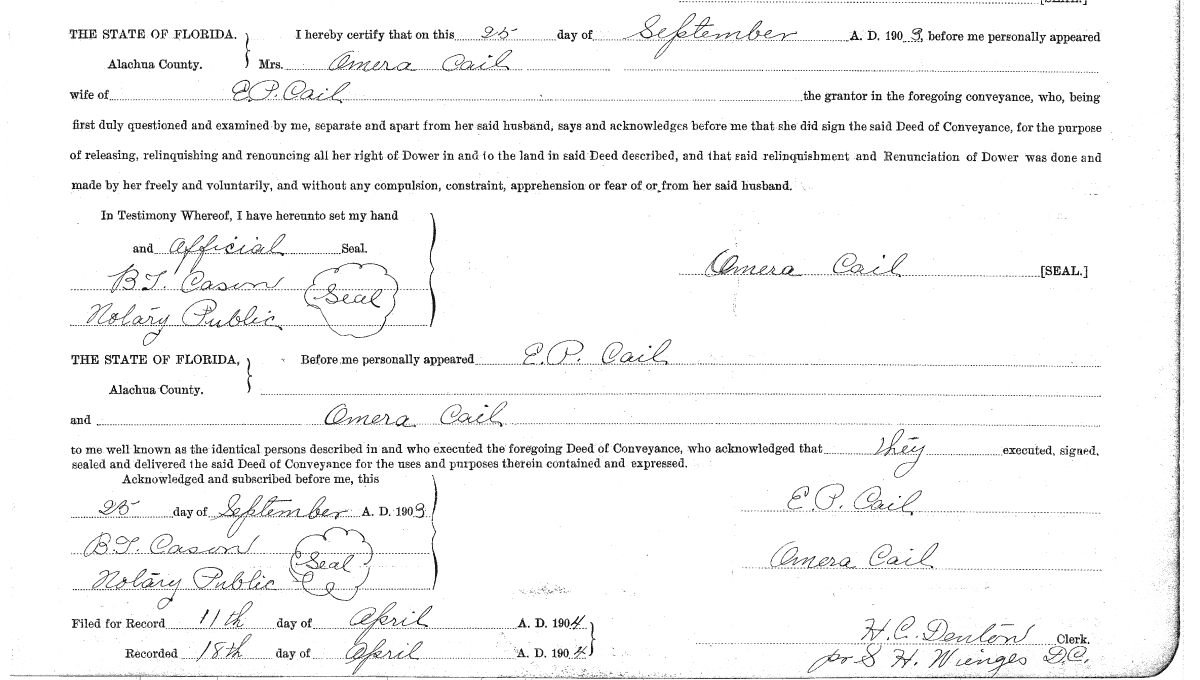 [SEAL.]
THE STATE OF FLORIDA. } I hereby certify that on this 25 day of September A. D. 1903, before me personally appeared
Alachua County. Mrs. Omera Cail
wife of E.P. Cail the grantor in the foregoing conveyance, who, being
first duly questioned and examined by me, separate and apart from her said husband, says and acknowledges before me that she did sign the said Deed of Conveyance, for the purpose
of releasing, relinquishing and renouncing all her right of Dower in and to the land in said Deed described, and that said relinquishment and Renunciation of Dower was done and
made by her freely and voluntarily, and without any compulsion, constraint, apprehension or fear of or from her said husband.
In Testimony Whereof, I have hereunto set my hand
and Official Seal.
Omera Cail [SEAL.]
B.T. Cason
Seal
Notary Public
THE STATE OF FLORIDA, } Before me personally appeared E.P. Cail
Alachua County.
and Omera Cail
to me well known as the identical persons described in and who executed the foregoing Deed of Conveyance, who acknowledged that they executed, signed,
sealed and delivered the said Deed of Conveyance for the uses and purposes therein contained and expressed.
Acknowledged and subscribed before me, this
25 day of September A. D. 1903
E.P. Cail
B.T. Cason
Seal
Omera Cail
Notary Public
Filed for Record 11th day of April A. D. 1904
H.C. Denton Clerk.
Recorded 18th day of April A. D. 1904
pr S H. Wienges D.C.